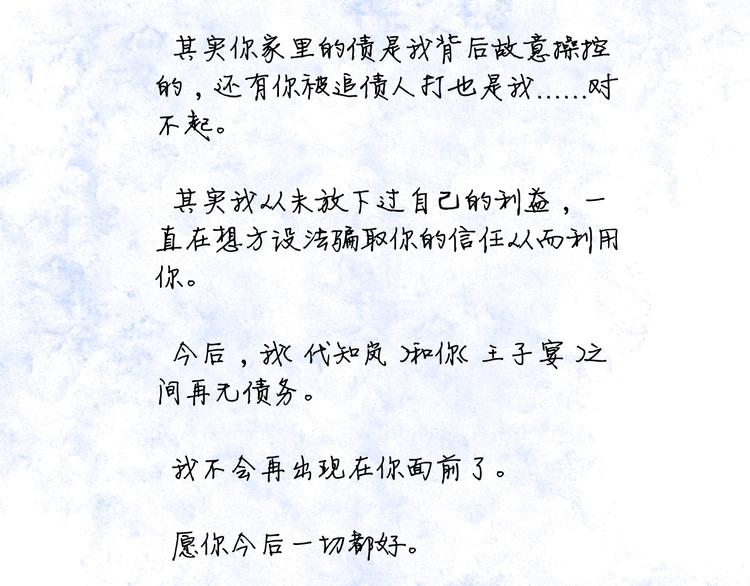 其实你家里的债是我背后故意操控
的，还有你被追债人打也是我......对
不起。
其实我从未放下过自己的利益，一
直在想方设法骗取你的信任从而利用
你。
今后，我（代知岚）和你（王子宴）之
间再无债务。
我不会再出现在你面前了。
愿你今后一切都好。